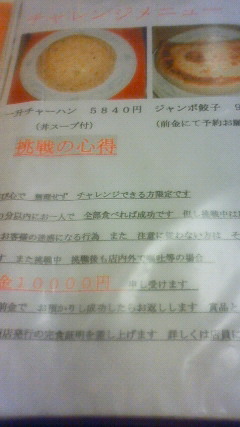 チャレンジメニュー
一分チャーハン 5840円 ジャンボ餃子 9
(丼スープ付) (前金にて予約お願
挑戦の心得
心で 無理せず チャレンジできる方限定です
分以内にお一人で 全部食べれば成功です 但し挑戦中は
お客様の迷惑になる行為 また 注意に従わない方は そ
す また挑戦中 挑戦後も店内外で嘔吐等の場合
金10000円 申し受けます
前金で お預かりし成功したらお返しします 賞品と
店発行の完食証明を差し上げます 詳しくは店員に